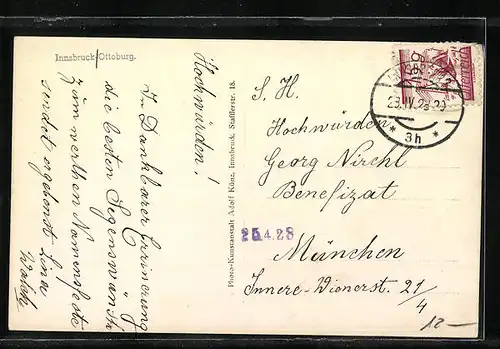 Innsbruck-Ottoburg.
Hochwürden!
In Dankbarer Erinnerung
die besten Segenswünsche
zum werthen Namensfeste
sendet ergebenst Lina
Photo-Kunstanstalt Adolf Künz, Innsbruck, Stafflerstr. 18.
25.4.28
* 3h *
S. H.
Hochwürden
Georg Nirchl
Benefizat
München
Innere-Wienerst. 21/4
12-